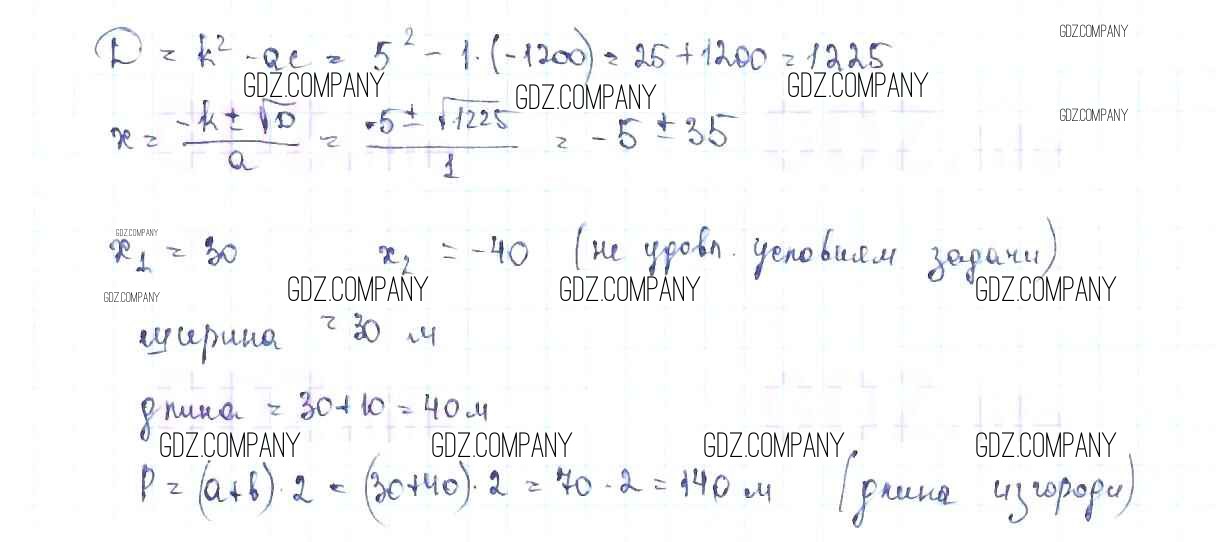 GDZ.COMPANY
D = k² - ac = 5² - 1·(-1200) = 25 + 1200 = 1225
GDZ.COMPANY GDZ.COMPANY GDZ.COMPANY
x = (-k ± √D)/a = (-5 ± √1225)/1 = -5 ± 35
GDZ.COMPANY
GDZ.COMPANY
x₁ = 30 x₂ = -40 (не удовл. условиям задачи)
GDZ.COMPANY GDZ.COMPANY GDZ.COMPANY GDZ.COMPANY
ширина = 30 м
длина = 30 + 10 = 40 м
GDZ.COMPANY GDZ.COMPANY GDZ.COMPANY GDZ.COMPANY
P = (a+b)·2 = (30+40)·2 = 70·2 = 140 м (длина изгороди)